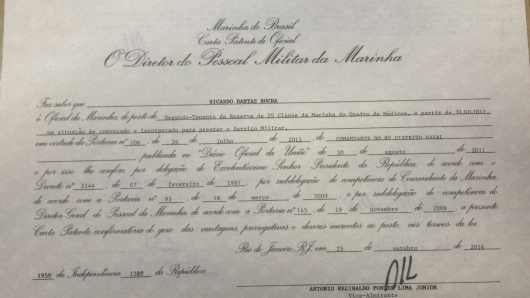 Marinha do Brasil
Carta Patente de Oficial
O Diretor do Pessoal Militar da Marinha
Faz saber que RICARDO DANTAS ROCHA
é Oficial da Marinha, do posto de Segundo-Tenente da Reserva de 2ª Classe da Marinha do Quadro de Médicos, a partir de 31JUL2011,
na situação de convocado e incorporado para prestar o Serviço Militar,
em virtude da Portaria nº 106, de 26 de julho de 2011, do COMANDANTE DO 8º DISTRITO NAVAL
publicada no "Diário Oficial da União" de 30 de agosto de 2011
e por isso lhe confere, por delegação do Excelentíssimo Senhor Presidente da República, de acordo com o
Decreto nº 2144, de 07 de fevereiro de 1997, por subdelegação de competência do Comandante da Marinha,
de acordo com a Portaria nº 93, de 18 de março de 2009, e por subdelegação de competência do
Diretor-Geral do Pessoal da Marinha, de acordo com a Portaria nº 145, de 19 de novembro de 2009, a presente
Carta Patente, confirmatória do gozo das vantagens, prerrogativas e deveres inerentes ao posto, nos termos da lei.
Rio de Janeiro, RJ, em 25 de outubro de 2016
195º da Independência 128º da República.
ANTONIO REGINALDO PONTES LIMA JUNIOR
Vice-Almirante